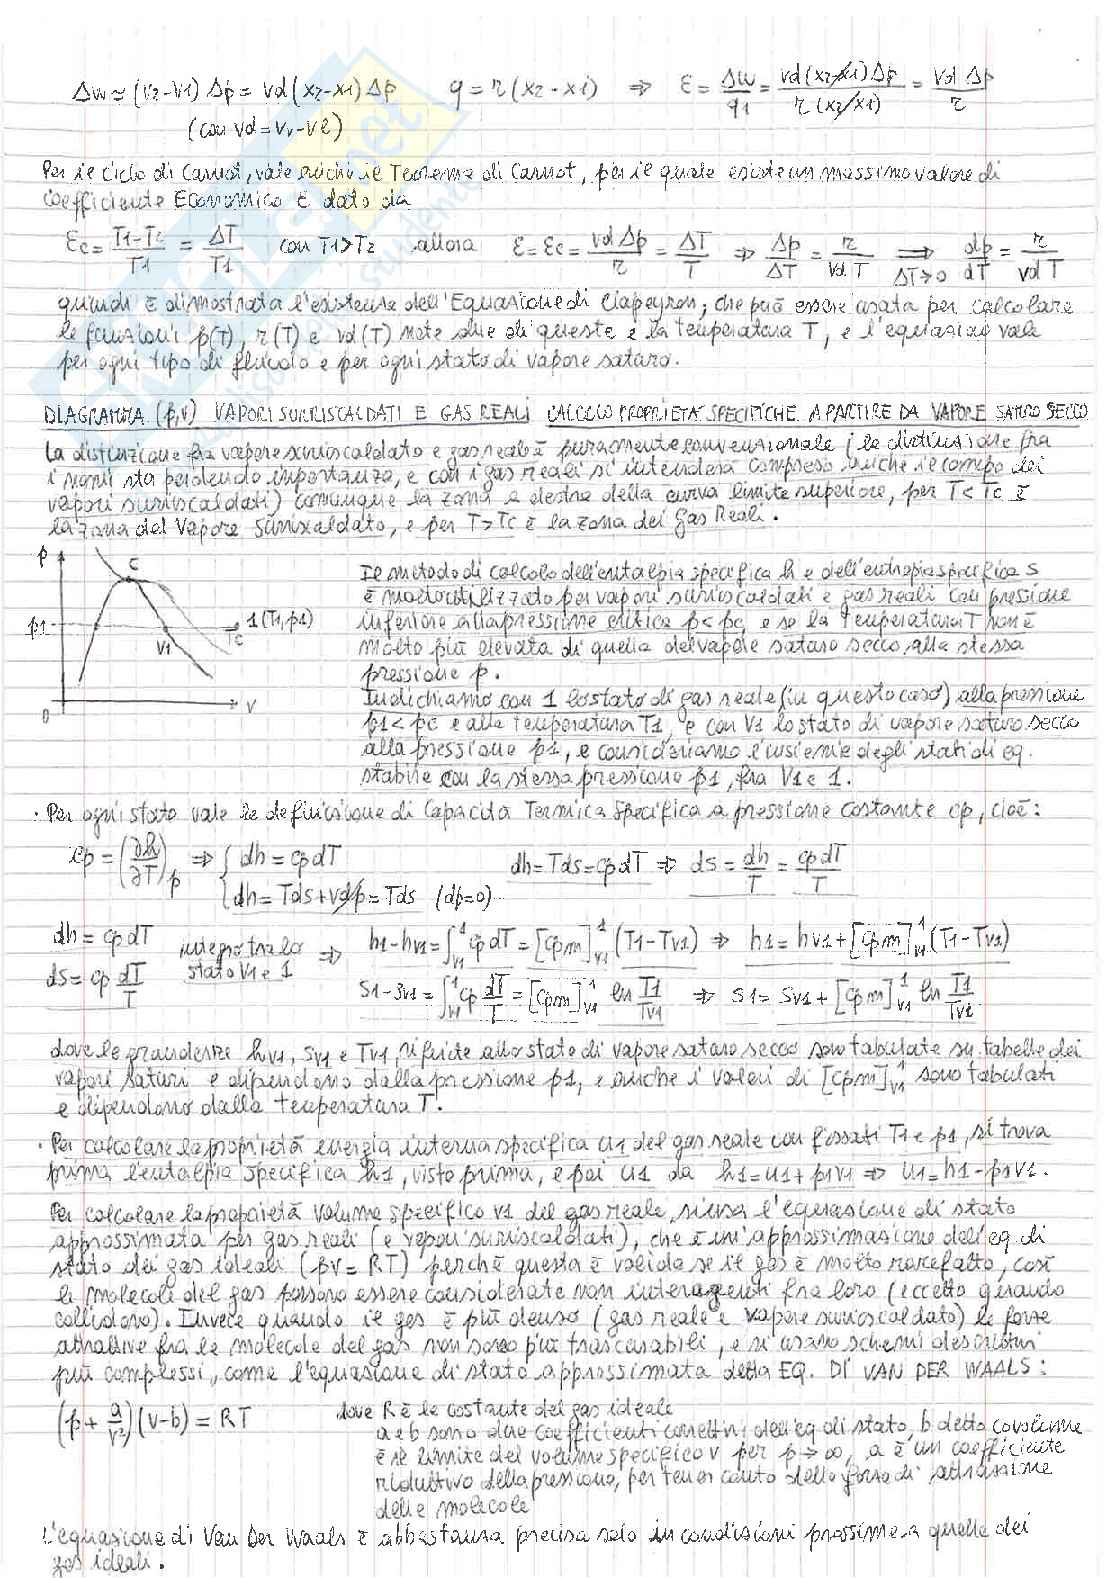 Δw ≃ (v2-v1) Δp = vd(x2-x1)Δp   q = r(x2-x1) ⇒ ε = Δw/q1 = vd(x2-x1)Δp / r(x2-x1) = vd Δp / r
(con vd = vv-vl)
Per il ciclo di Carnot, vale anche il Teorema di Carnot, per il quale esiste un massimo valore di
coefficiente Economico è dato da
εc = T1-T2 / T1 = ΔT / T1   con T1>T2   allora   ε = εc = vd Δp / r = ΔT / T ⇒ Δp / ΔT = r / vd T ⇒ ΔT→0 dp/dT = r / vd T
quindi è dimostrata l'esistenza dell'Equazione di Clapeyron; che può essere usata per calcolare
le funzioni p(T), r(T) e vd(T) note due di queste e la temperatura T, e l'equazione vale
per ogni tipo di fluido e per ogni stato di vapore saturo.
DIAGRAMMA (p,v) VAPORI SURRISCALDATI E GAS REALI CALCOLO PROPRIETÀ SPECIFICHE A PARTIRE DA VAPORE SATURO SECCO
La distinzione fra vapore surriscaldato e gas reale è puramente convenzionale (la distinzione fra
i nomi sta perdendo importanza, e con i gas reali si intenderà compreso anche il campo dei
vapori surriscaldati) comunque la zona a destra della curva limite superiore, per T<Tc è
la zona del Vapore Surriscaldato, e per T>Tc è la zona dei Gas Reali.
p
C
p1
V1
1(T1,p1)
Tc
0
v
Il metodo di calcolo dell'entalpia specifica h e dell'entropia specifica s
è molto utilizzato per vapori surriscaldati e gas reali con pressione
inferiore alla pressione critica p<pc, e se la temperatura T non è
molto più elevata di quella del vapore saturo secco alla stessa
pressione p.
Indichiamo con 1 lo stato di gas reale (in questo caso) alla pressione
p1<pc e alla temperatura T1, e con V1 lo stato di vapore saturo secco
alla pressione p1, e consideriamo l'insieme degli stati di eq.
stabile con la stessa pressione p1, fra V1 e 1.
· Per ogni stato vale la definizione di Capacità Termica Specifica a pressione costante cp, cioè:
cp = (∂h/∂T)p ⇒ { dh = cp dT   dh = Tds = cp dT ⇒ ds = dh/T = cp dT/T
dh = Tds + vdp = Tds (dp=0)
dh = cp dT   integro tra lo stato V1 e 1 ⇒ h1-hv1 = ∫v1^1 cp dT = [cpm]v1^1 (T1-Tv1) ⇒ h1 = hv1 + [cpm]v1^1 (T1-Tv1)
ds = cp dT/T   s1-sv1 = ∫v1^1 cp dT/T = [cpm]v1^1 ln T1/Tv1 ⇒ s1 = sv1 + [cpm]v1^1 ln T1/Tv1
dove le grandezze hv1, sv1 e Tv1, riferite allo stato di vapore saturo secco sono tabulate su tabelle dei
vapori saturi e dipendono dalla pressione p1, e anche i valori di [cpm]v1^1 sono tabulati
e dipendono dalla temperatura T.
· Per calcolare la proprietà energia interna specifica u1 del gas reale con fissati T1 e p1, si trova
prima l'entalpia specifica h1, visto prima, e poi u1 da h1=u1+p1v1 ⇒ u1=h1-p1v1.
Per calcolare la proprietà volume specifico v1 del gas reale, si usa l'equazione di stato
approssimata per gas reali (e vapori surriscaldati), che è un'approssimazione dell'eq. di
stato dei gas ideali (pv=RT) perchè questa è valida se il gas è molto rarefatto, così
le molecole del gas possono essere considerate non interagenti fra loro (eccetto quando
collidono). Invece quando il gas è più denso (gas reale e vapore surriscaldato) le forze
attrattive fra le molecole del gas non sono più trascurabili, e si usano schemi descrittivi
più complessi, come l'equazione di stato approssimata detta EQ. DI VAN DER WAALS:
(p + a/v²)(v-b) = RT   dove R è la costante del gas ideale
a e b sono due coefficienti correttivi dell'eq di stato, b detto covolume
è il limite del volume specifico v per p→∞, a è un coefficiente
riduttivo della pressione, per tener conto delle forze di attrazione
delle molecole
L'equazione di Van Der Waals è abbastanza precisa solo in condizioni prossime a quelle dei
gas ideali.